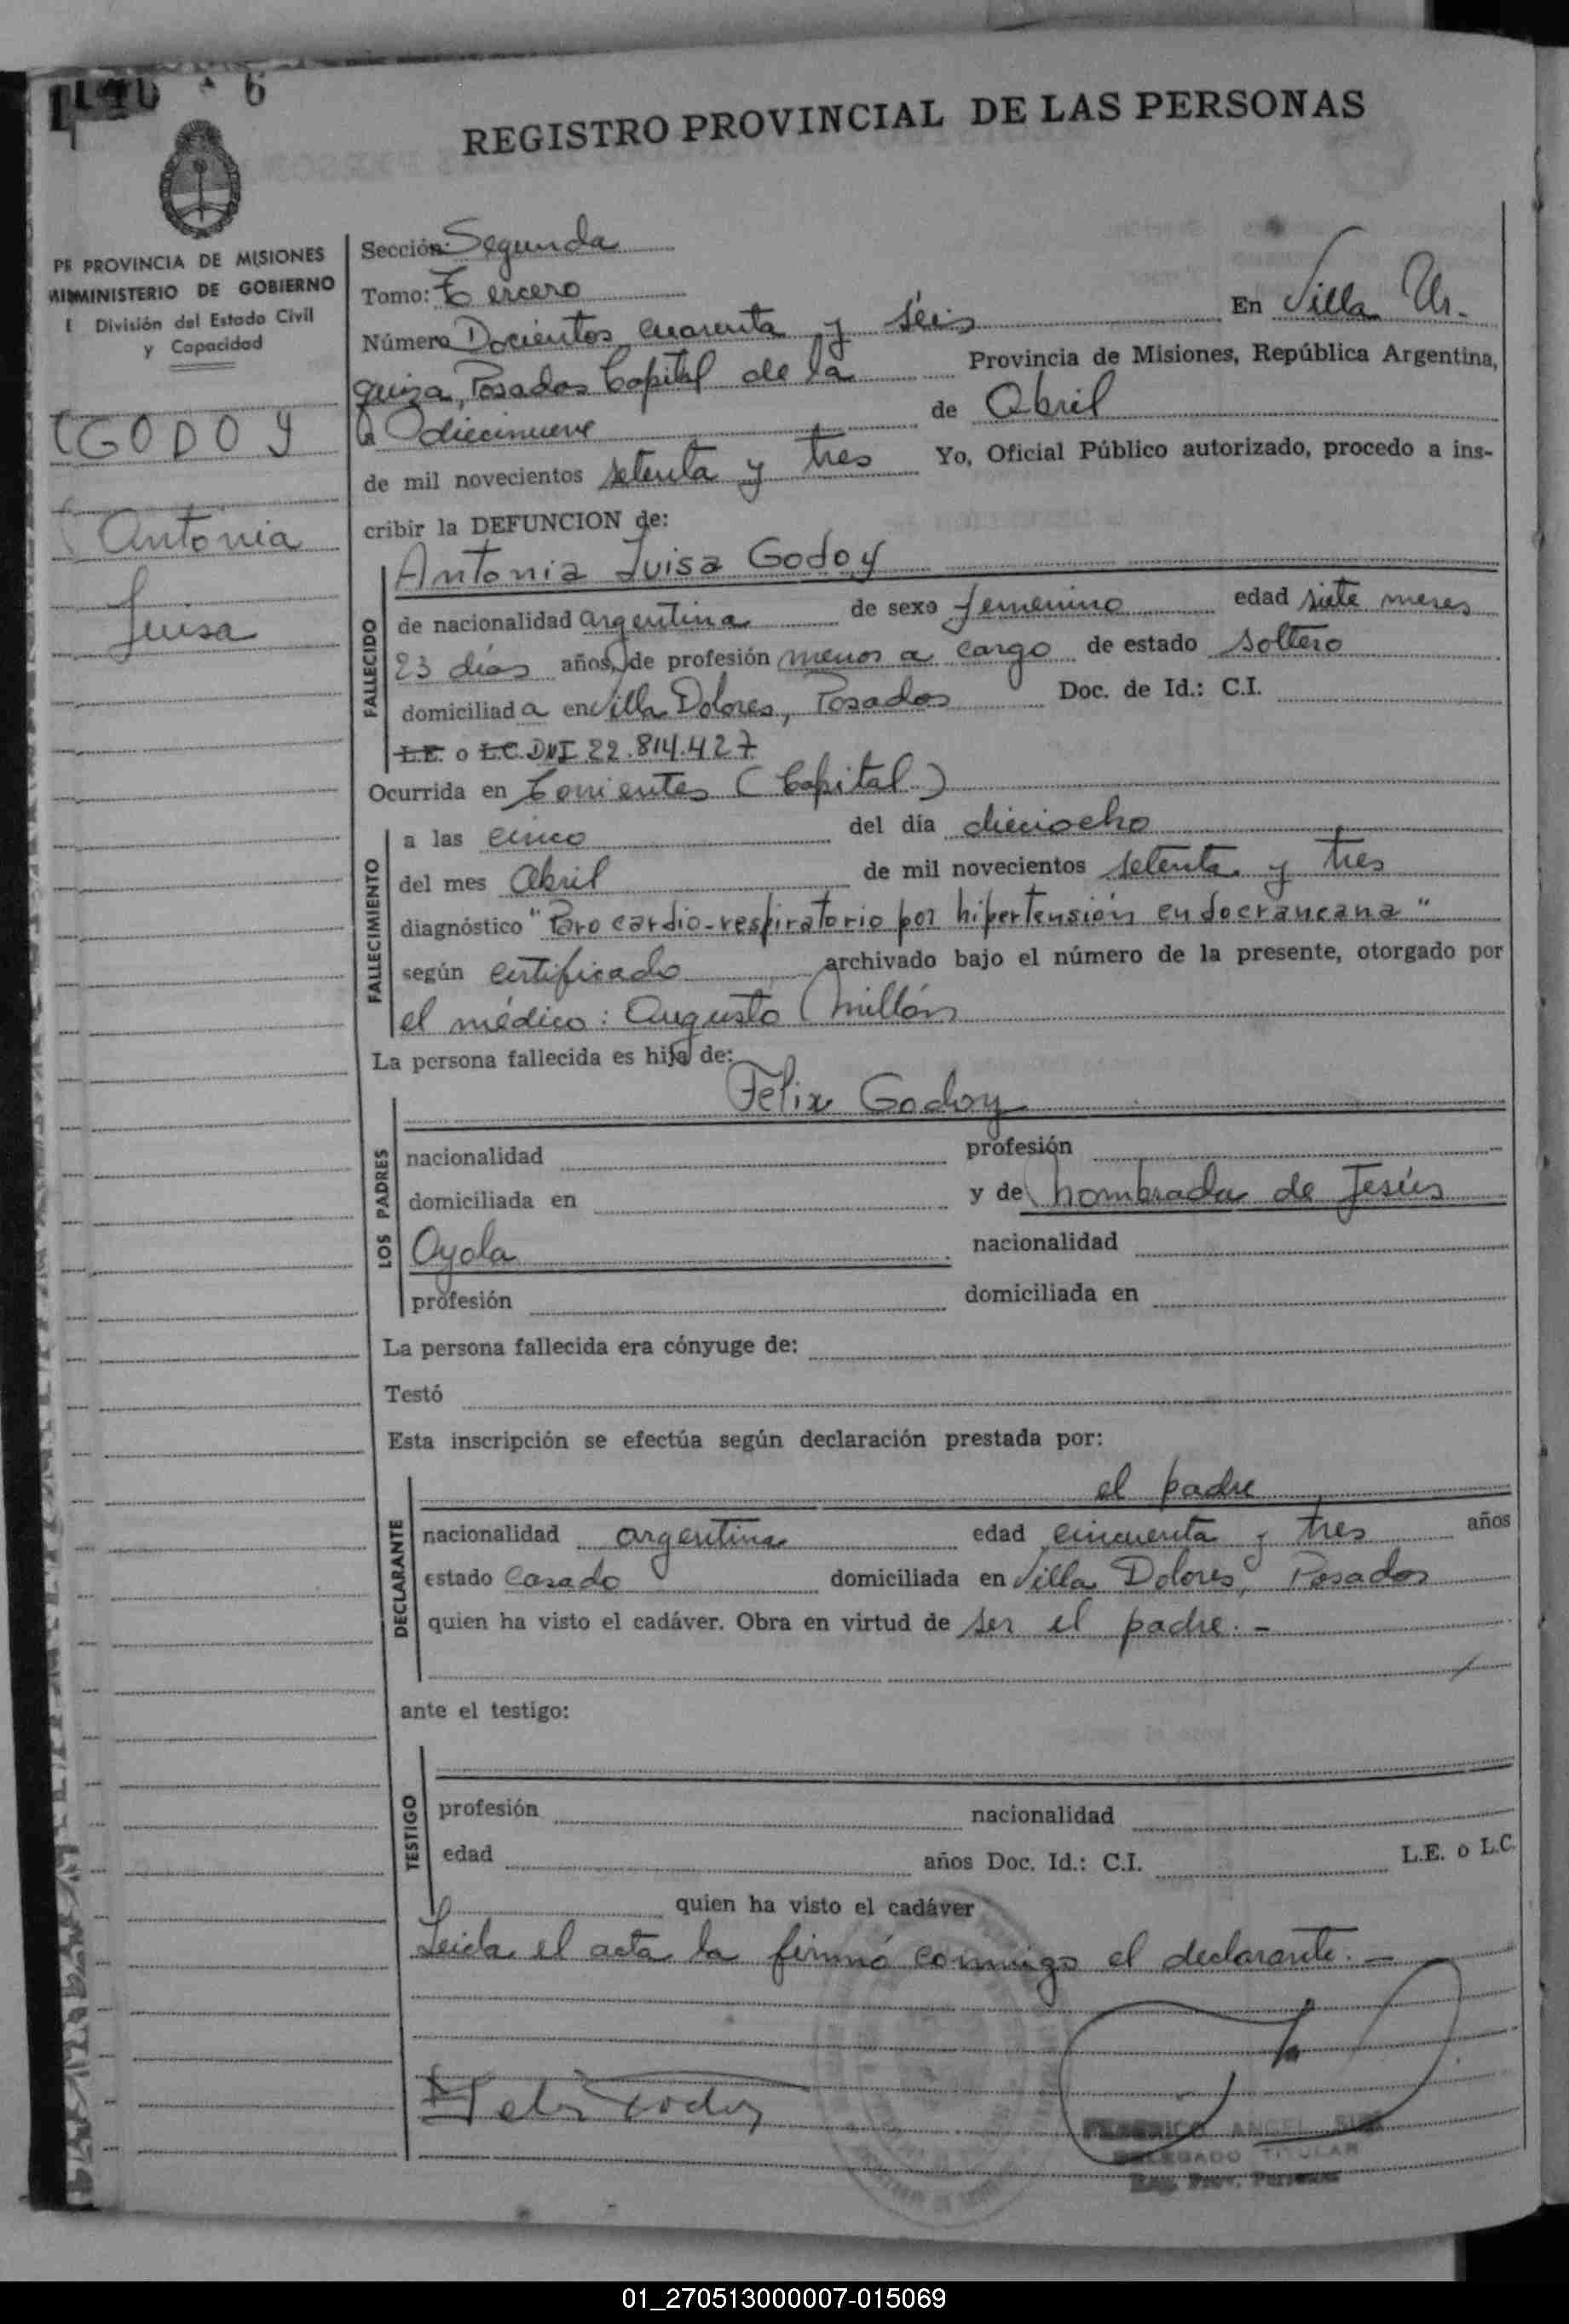 6
REGISTRO PROVINCIAL DE LAS PERSONAS
PROVINCIA DE MISIONES
MINISTERIO DE GOBIERNO
División del Estado Civil
y Capacidad
GODOY
Antonia
Luisa
Sección: Segunda
Tomo: Tercero
Número Docientos cuarenta y séis En Villa Ur-
quiza, Posadas Capital de la Provincia de Misiones, República Argentina,
a diecinueve de Abril
de mil novecientos setenta y tres Yo, Oficial Público autorizado, procedo a ins-
cribir la DEFUNCION de:
FALLECIDO
Antonia Luisa Godoy
de nacionalidad argentina de sexo femenino edad siete meses
23 días años, de profesión menor a cargo de estado soltero
domiciliada en Villa Dolores, Posadas Doc. de Id.: C.I.
L.E. o L.C. DNI 22.814.427
Ocurrida en Corrientes (Capital)
FALLECIMIENTO
a las cinco del día dieciocho
del mes Abril de mil novecientos setenta y tres
diagnóstico "Paro cardio-respiratorio por hipertensión endocraneana"
según certificado archivado bajo el número de la presente, otorgado por
el médico: Augusto Millán
La persona fallecida es hija de:
LOS PADRES
Felix Godoy
nacionalidad profesión
domiciliada en y de nombrada de Jesús
Oyola nacionalidad
profesión domiciliada en
La persona fallecida era cónyuge de:
Testó
Esta inscripción se efectúa según declaración prestada por:
DECLARANTE
el padre
nacionalidad argentina edad cincuenta y tres años
estado casado domiciliada en Villa Dolores, Posadas
quien ha visto el cadáver. Obra en virtud de ser el padre. -
ante el testigo:
TESTIGO
profesión nacionalidad
edad años Doc. Id.: C.I. L.E. o L.C.
quien ha visto el cadáver
Leida el acta la firmó conmigo el declarante. -
Felix Godoy
FEDERICO ANGEL
DELEGADO TITULAR
Reg. Prov. Personas
01_270513000007-015069